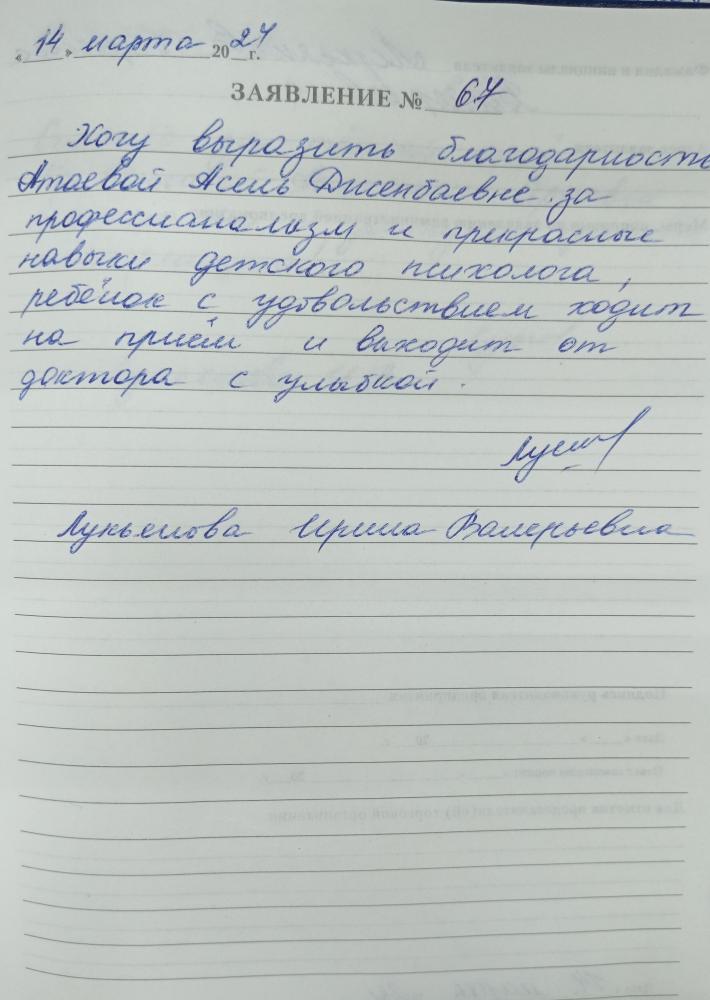 «14» марта 2024 г.
ЗАЯВЛЕНИЕ № 67
Хочу выразить благодарность
Атаевой Асель Джсенбаевне за
профессианализм и прекрасные
навыки детского психолога,
ребёнок с удовольствием ходит
на приём и выходит от
доктора с улыбкой.
Лукьянова Ирина Валерьевна